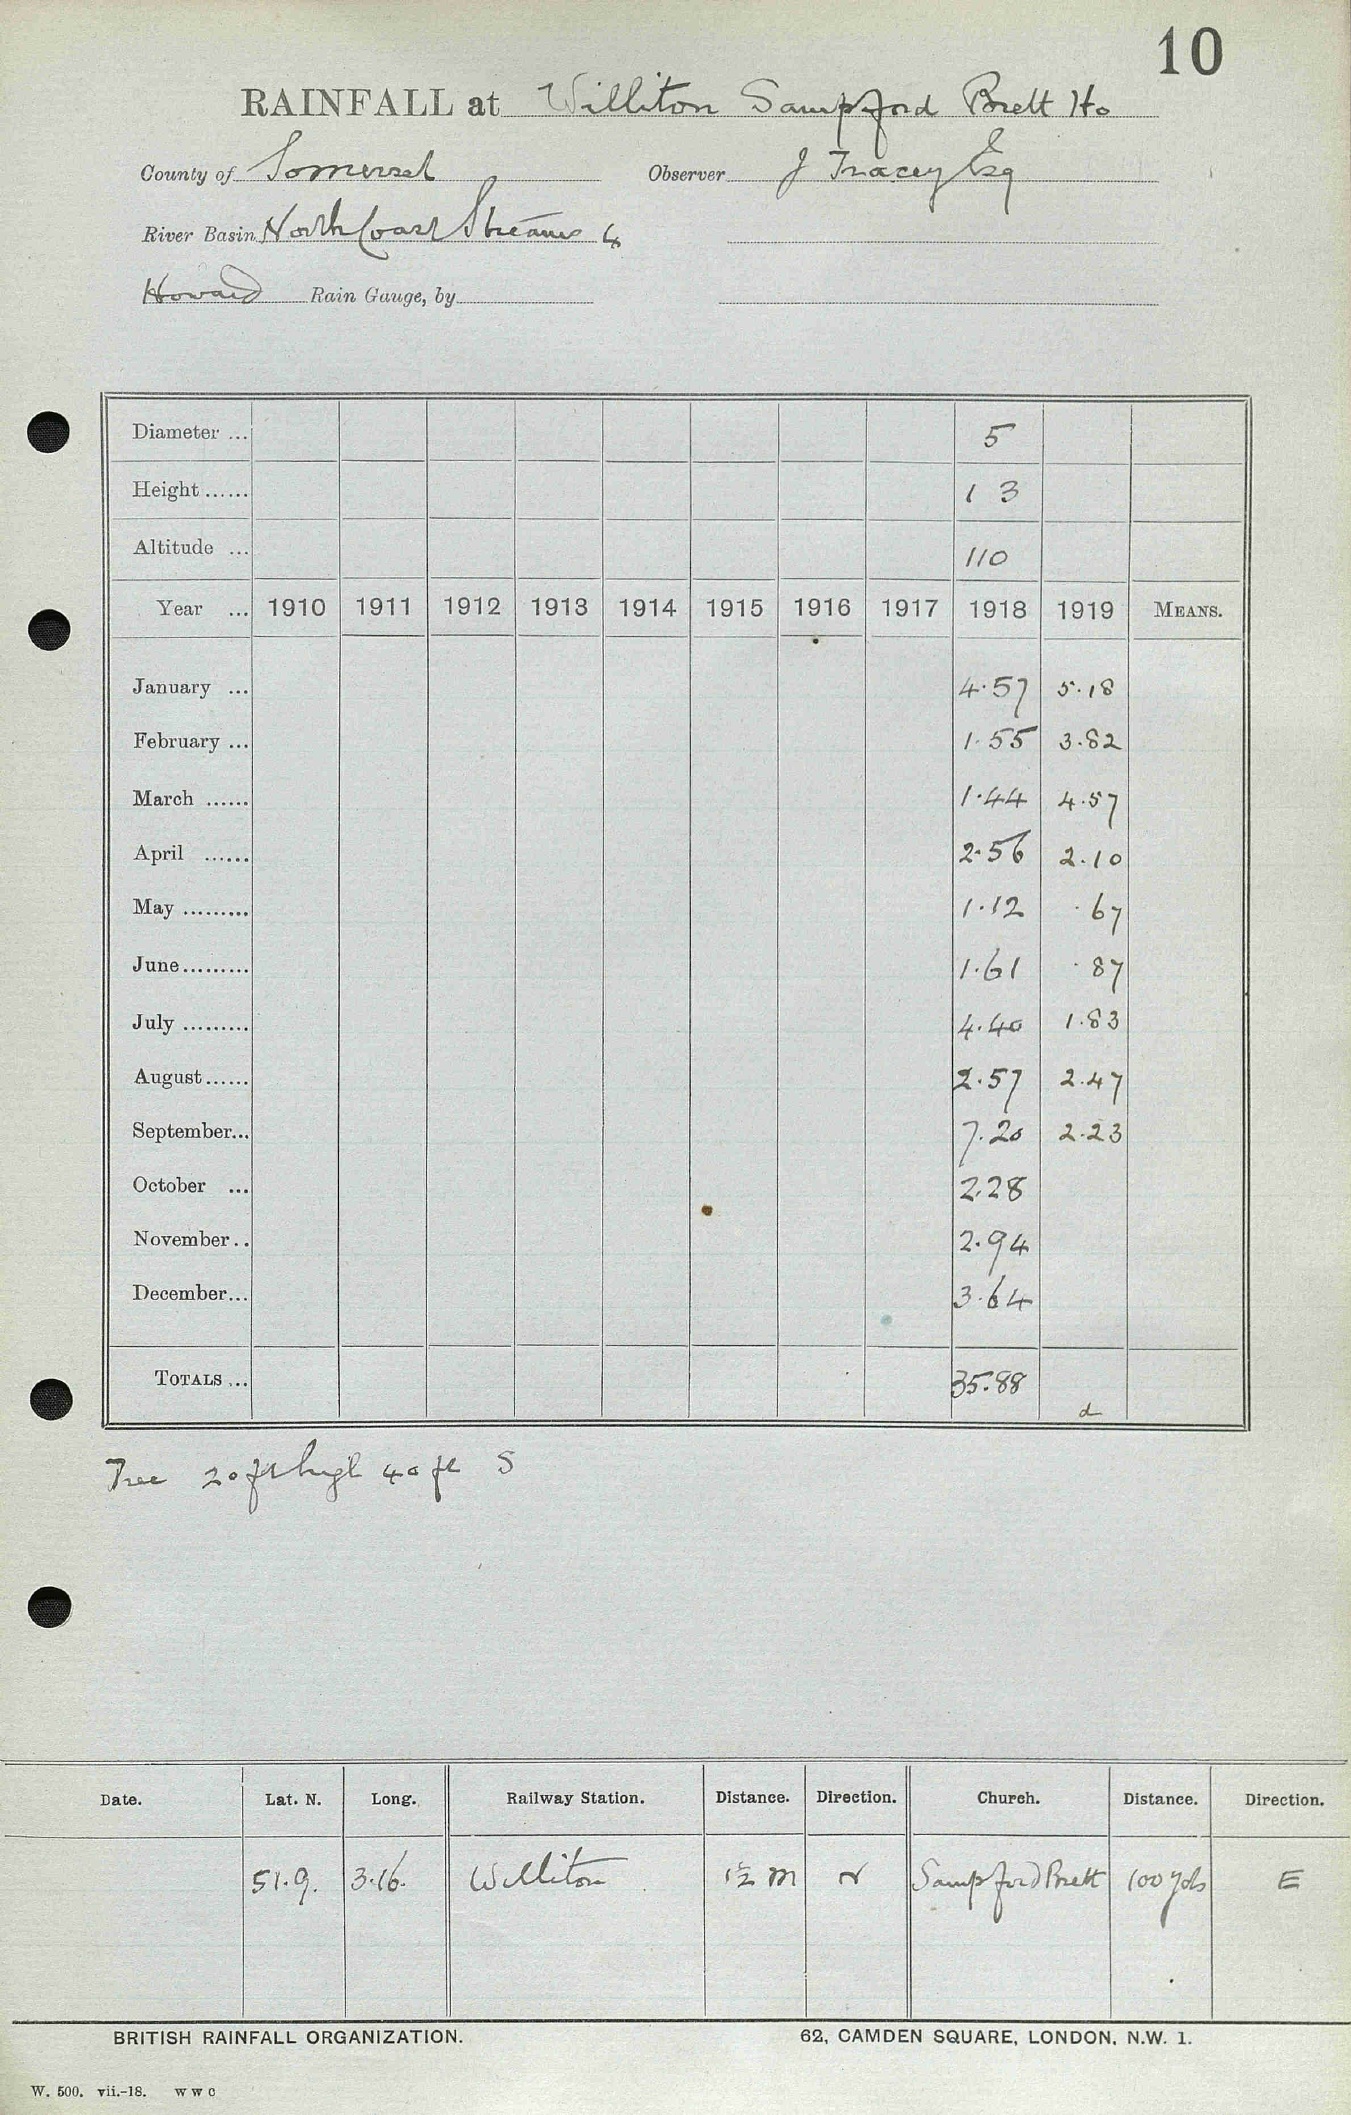 10
RAINFALL at Williton Sampford Brett Ho
County of Somerset Observer J Tracey Esq
River Basin North Coast Streams 4
Howard Rain Gauge, by
Diameter ... 5
Height ...... 1 3
Altitude ... 110
Year ... 1910 1911 1912 1913 1914 1915 1916 1917 1918 1919 MEANS.
January ... 4.57 5.18
February ... 1.55 3.82
March ...... 1.44 4.57
April ...... 2.56 2.10
May ......... 1.12 .67
June ......... 1.61 .87
July ......... 4.40 1.83
August ...... 2.57 2.47
September... 7.20 2.23
October ... 2.28
November .. 2.94
December... 3.64
TOTALS ... 35.88
d
Tree 20 ft high 40 ft S
Date. Lat. N. Long. Railway Station. Distance. Direction. Church. Distance. Direction.
51.9. 3.16. Williton 1½ m N Sampford Brett 100 yds E
BRITISH RAINFALL ORGANIZATION. 62, CAMDEN SQUARE, LONDON, N.W. 1.
W. 500. vii.-18. W W C